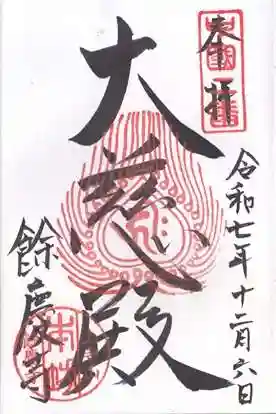 奉拝
令和七年十二月六日
大慈殿
餘慶寺